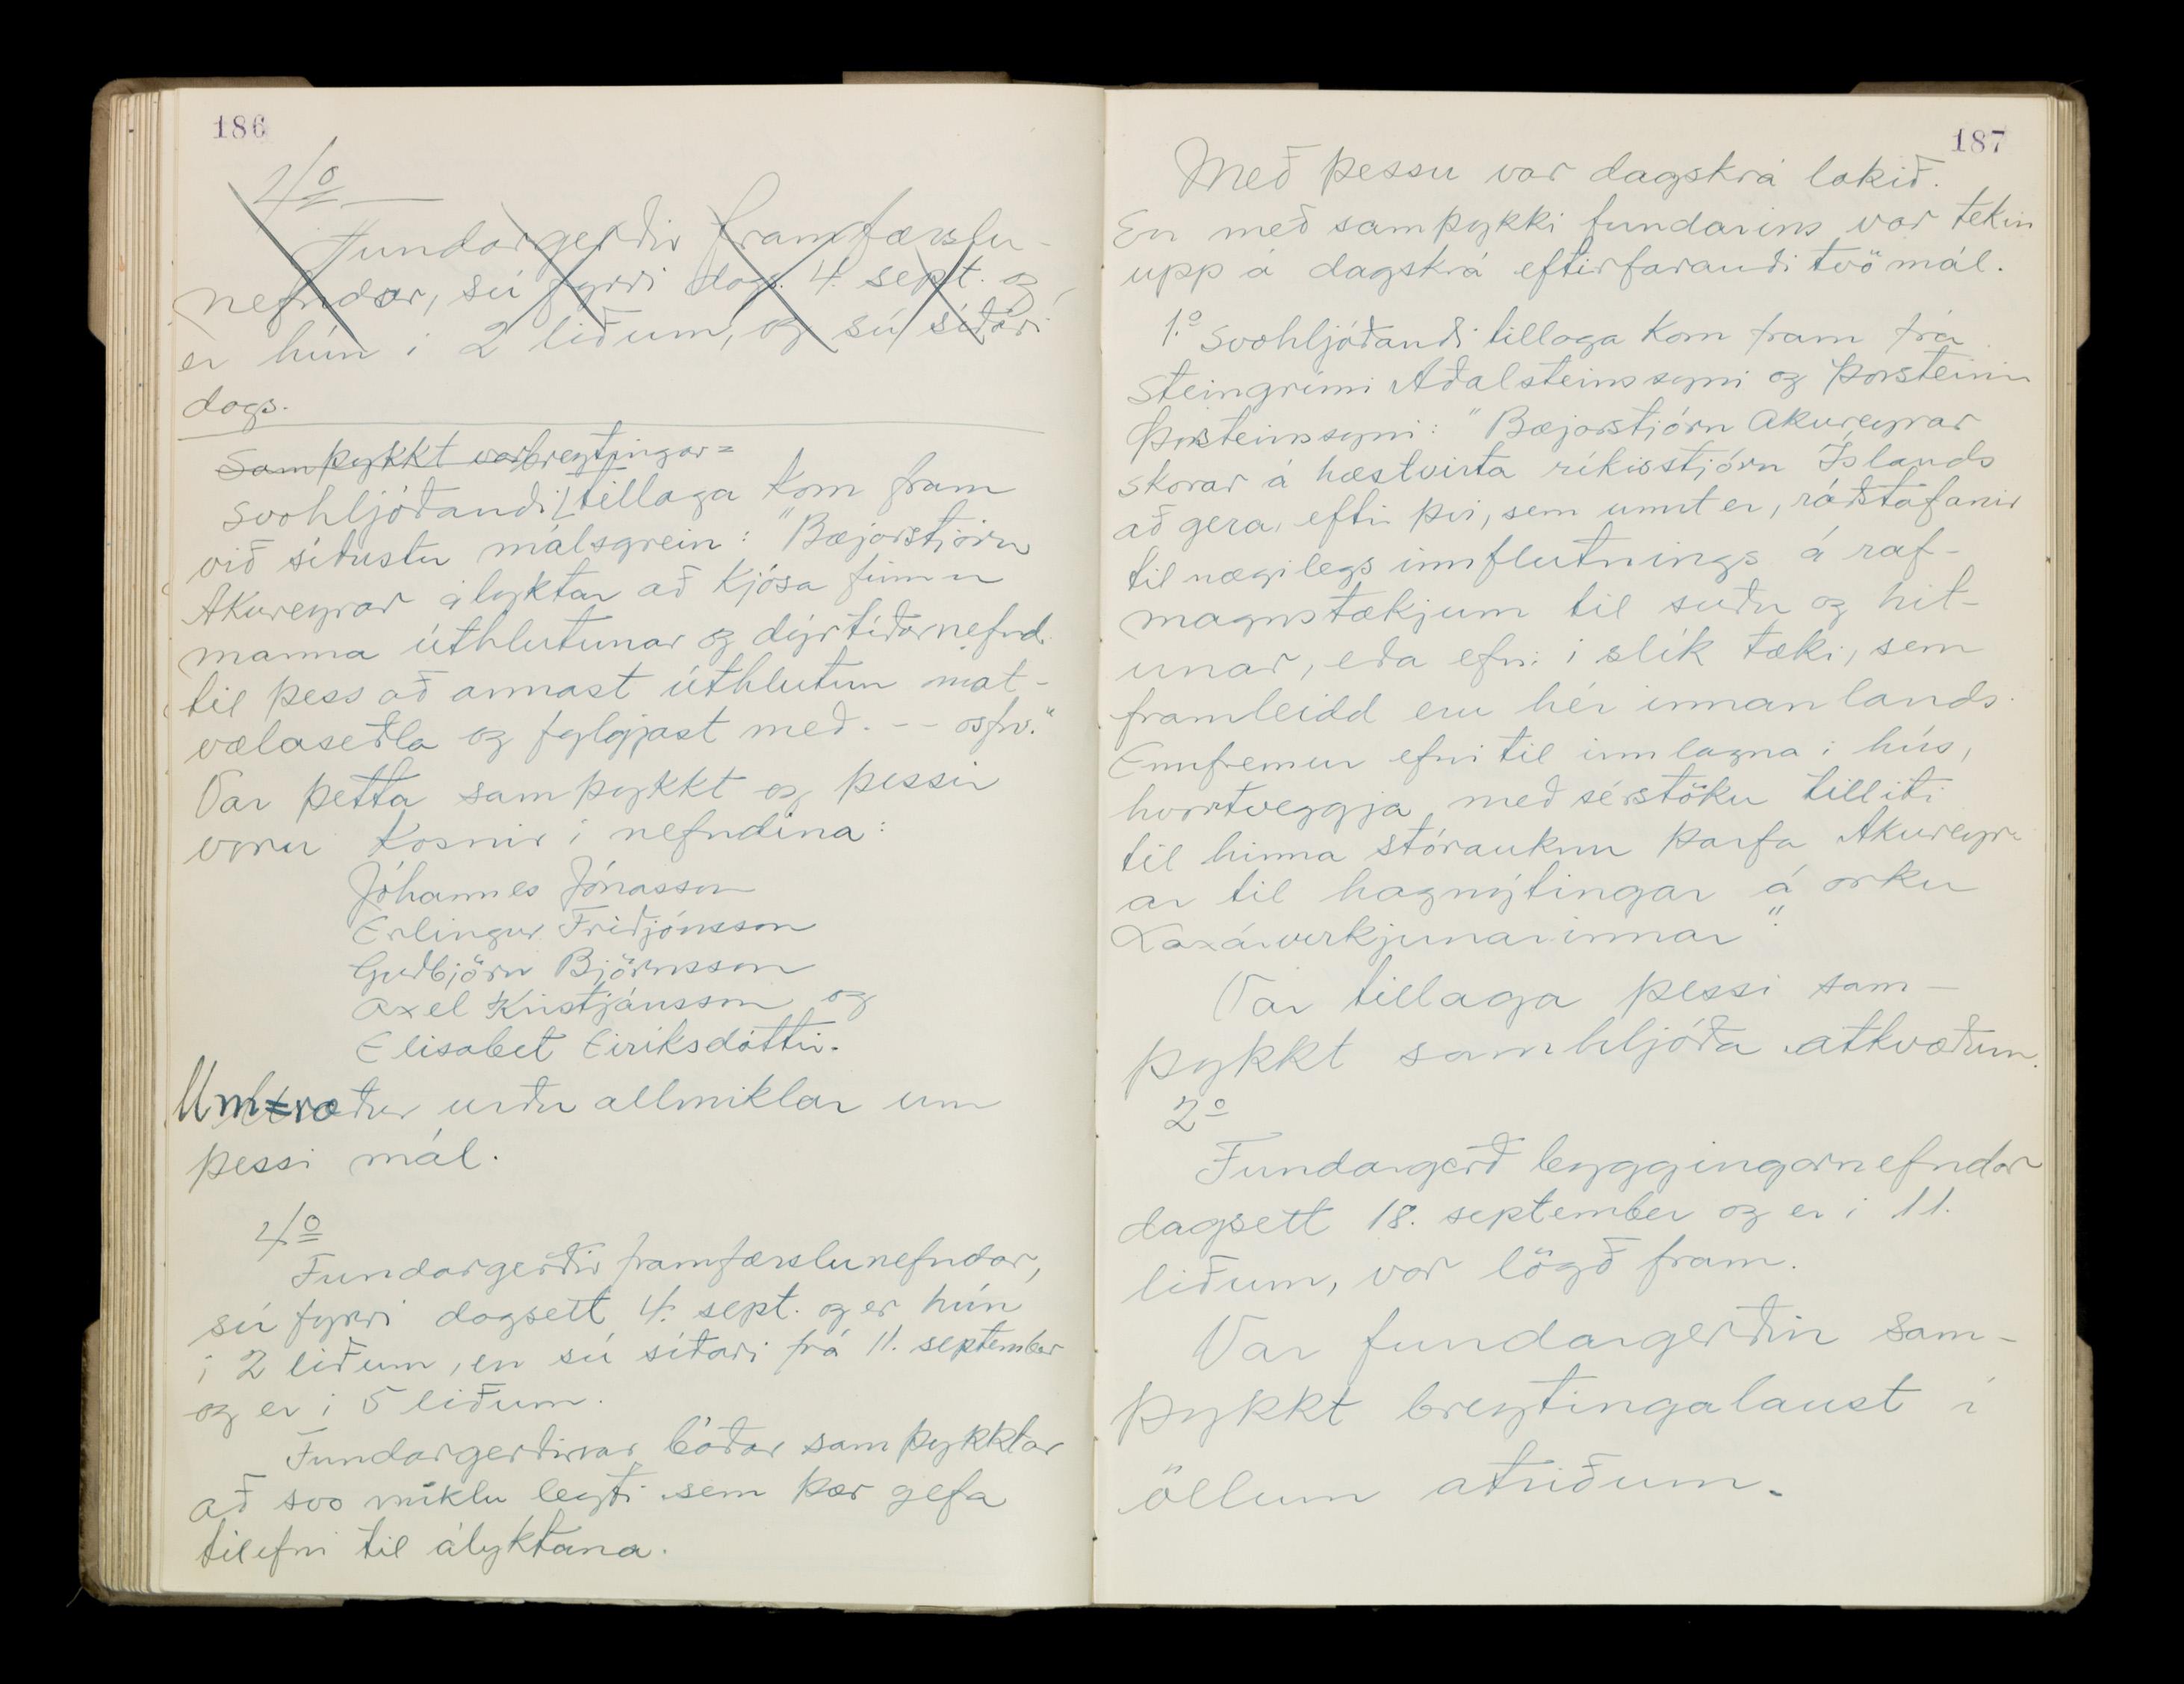 186
4º
Fundargerðir framfærslu-
nefndar, sú fyrri dags. 4. sept. og
er hún í 2 liðum, og sú síðari
dags.
Samþykkt var breytingar=
Svohljóðandi tillaga kom fram
við síðustu málsgrein: "Bæjarstjórn
Akureyrar ályktar að kjósa fimm
manna úthlutunar og dýrtíðarnefnd
til þess að annast úthlutun mat-
vælaseðla og fylgjast með. -- osfrv."
Var þetta samþykkt og þessir
voru kosnir í nefndina:
Jóhannes Jónasson
Erlingur Friðjónsson
Guðbjörn Björnsson
Axel Kristjánsson og
Elisabet Eiriksdóttir.
Umræður urðu allmiklar um
þessi mál.
4º
Fundargerðir framfærslunefndar,
sú fyrri dagsett 4. sept. og er hún
í 2 liðum, en sú síðari frá 11. september
og er í 5 liðum.
Fundargerðirnar báðar samþykktar
að svo miklu leyti sem þær gefa
tilefni til ályktana.
187
Með þessu var dagskrá lokið.
En með samþykki fundarins var tekin
upp á dagskrá eftirfarandi tvö mál.
1.º Svohljóðandi tillaga kom fram frá
Steingrími Aðalsteinssyni og Þorsteini
Þorsteinssyni: "Bæjarstjórn Akureyrar
skorar á hæstvirta ríkisstjórn Íslands
að gera, eftir því, sem unnt er, ráðstafanir
til nægilegs innflutnings á raf-
magnstækjum til suðu og hit-
unar, eða efni í slík tæki, sem
framleidd eru hér innanlands.
Ennfremur efni til innlagna í hús,
hvortveggja með sérstöku tilliti
til hinna stórauknu þarfa Akureyr-
ar til hagnýtingar á orku
Laxárvirkjunarinnar".
Var tillaga þessi sam-
þykkt samhljóða atkvæðum.
2º
Fundargerð byggingarnefndar
dagsett 18. september og er í 11.
liðum, var lögð fram.
Var fundargerðin sam-
þykkt breytingalaust í
öllum atriðum.